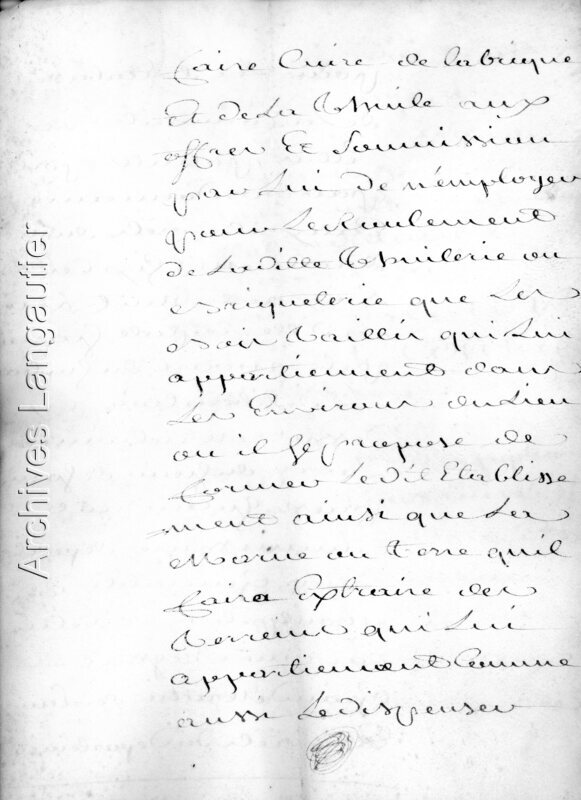 faire Cuire de la brique
Et de La Thuile aux
offres Et Soumission
par Lui de n'employer
pour Le Roulement
de Ladille Thuilerie ou
Briquelerie que Les
Bois Taillis qui Lui
appartiennent dans
Les Environs du Lieu
ou il Se propose de
former Le dit Etablisse
ment ainsi que La
Marne ou terre quil
faira Extraire des
Terreins qui Lui
appartiennent Comme
aussi Le dispenser
Archives Langautier